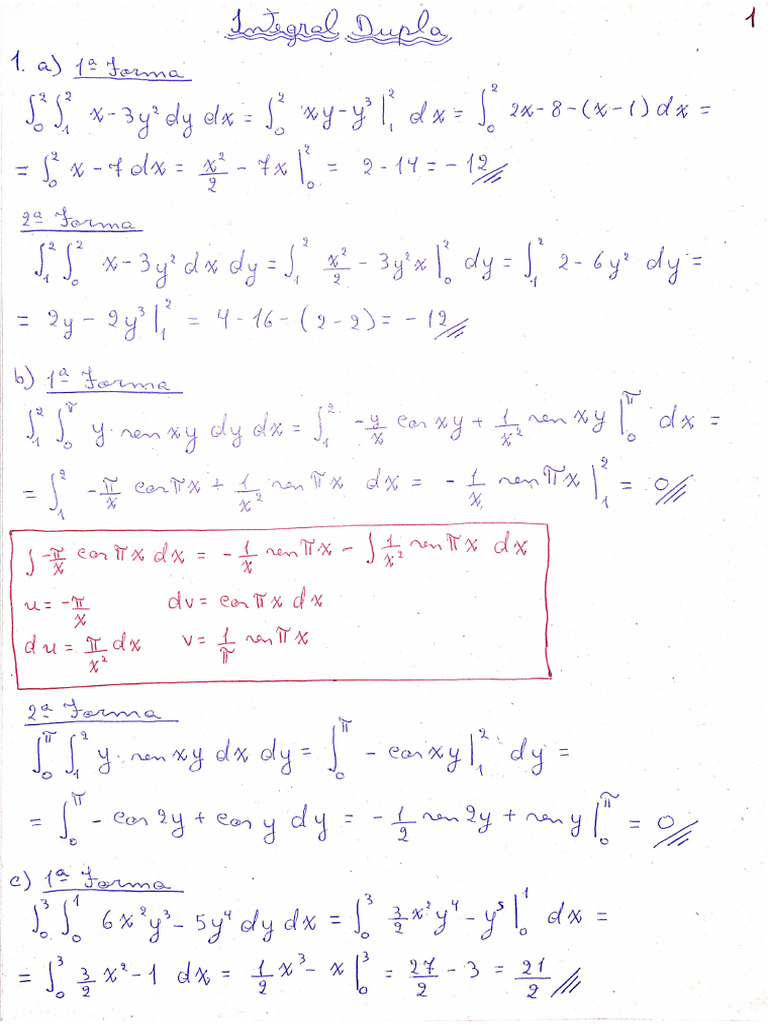 Integral Dupla
1
1. a) 1ª Forma
∫₀² ∫₁² x - 3y² dy dx = ∫₀² xy - y³ |₁² dx = ∫₀² 2x - 8 - (x - 1) dx =
= ∫₀² x - 7 dx = x²/2 - 7x |₀² = 2 - 14 = -12
2ª Forma
∫₁² ∫₀² x - 3y² dx dy = ∫₁² x²/2 - 3y²x |₀² dy = ∫₁² 2 - 6y² dy =
= 2y - 2y³ |₁² = 4 - 16 - (2 - 2) = -12
b) 1ª Forma
∫₁² ∫₀^π y · sen xy dy dx = ∫₁² -y/x cos xy + 1/x² sen xy |₀^π dx =
= ∫₁² -π/x cos πx + 1/x² sen πx dx = -1/x sen πx |₁² = 0
∫ -π/x cos πx dx = -1/x sen πx - ∫ 1/x² sen πx dx
u = -π/x dv = cos πx dx
du = π/x² dx v = 1/π sen πx
2ª Forma
∫₀^π ∫₁² y · sen xy dx dy = ∫₀^π - cos xy |₁² dy =
= ∫₀^π - cos 2y + cos y dy = -1/2 sen 2y + sen y |₀^π = 0
c) 1ª Forma
∫₀³ ∫₀¹ 6x²y³ - 5y⁴ dy dx = ∫₀³ 3/2 x²y⁴ - y⁵ |₀¹ dx =
= ∫₀³ 3/2 x² - 1 dx = 1/2 x³ - x |₀³ = 27/2 - 3 = 21/2